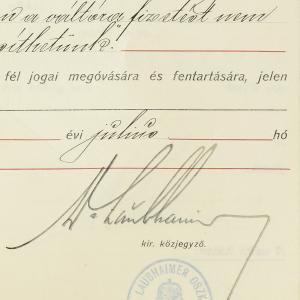 a váltóra fizetést nem
fél jogai megóvására és fentartására, jelen
évi julius hó
Dr Laubhaimer
kir. közjegyző.
LAUBHAIMER OSZK